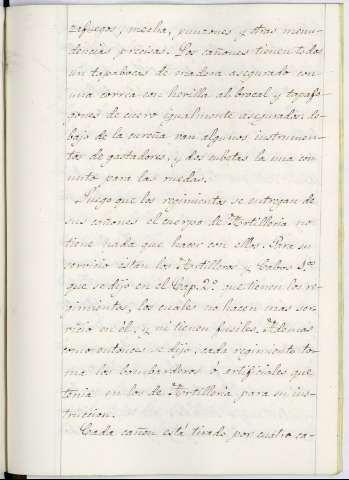 zafuegos, mecha, punzones y otras menu-
dencias precisas. Los cañones tienen todos
un tapabocas de madera asegurado con
una correa con hevilla al brocal y tapafo-
gones de cuero igualmente asegurados. De-
bajo de la cureña van algunos instrumen-
tos de gastadores, y dos cubetas la una con
unto para las ruedas.
Luego que los regimientos se entregan de
sus cañones el cuerpo de Artilleria no
tiene nada que hacer con ellos. Para su
servicio están los Artilleros y Cabos 1.os
que se dijo en el Cap. 2.º que tienen los re-
gimientos, los cuales no hacen mas ser-
vicio en él, y ni tienen fusiles. Ademas
como entonces se dijo, cada regimiento to-
ma los bombarderos ó artificiales que
tenia en los de Artilleria para su ins-
truccion.
Cada cañon está tirado por cuatro ca-